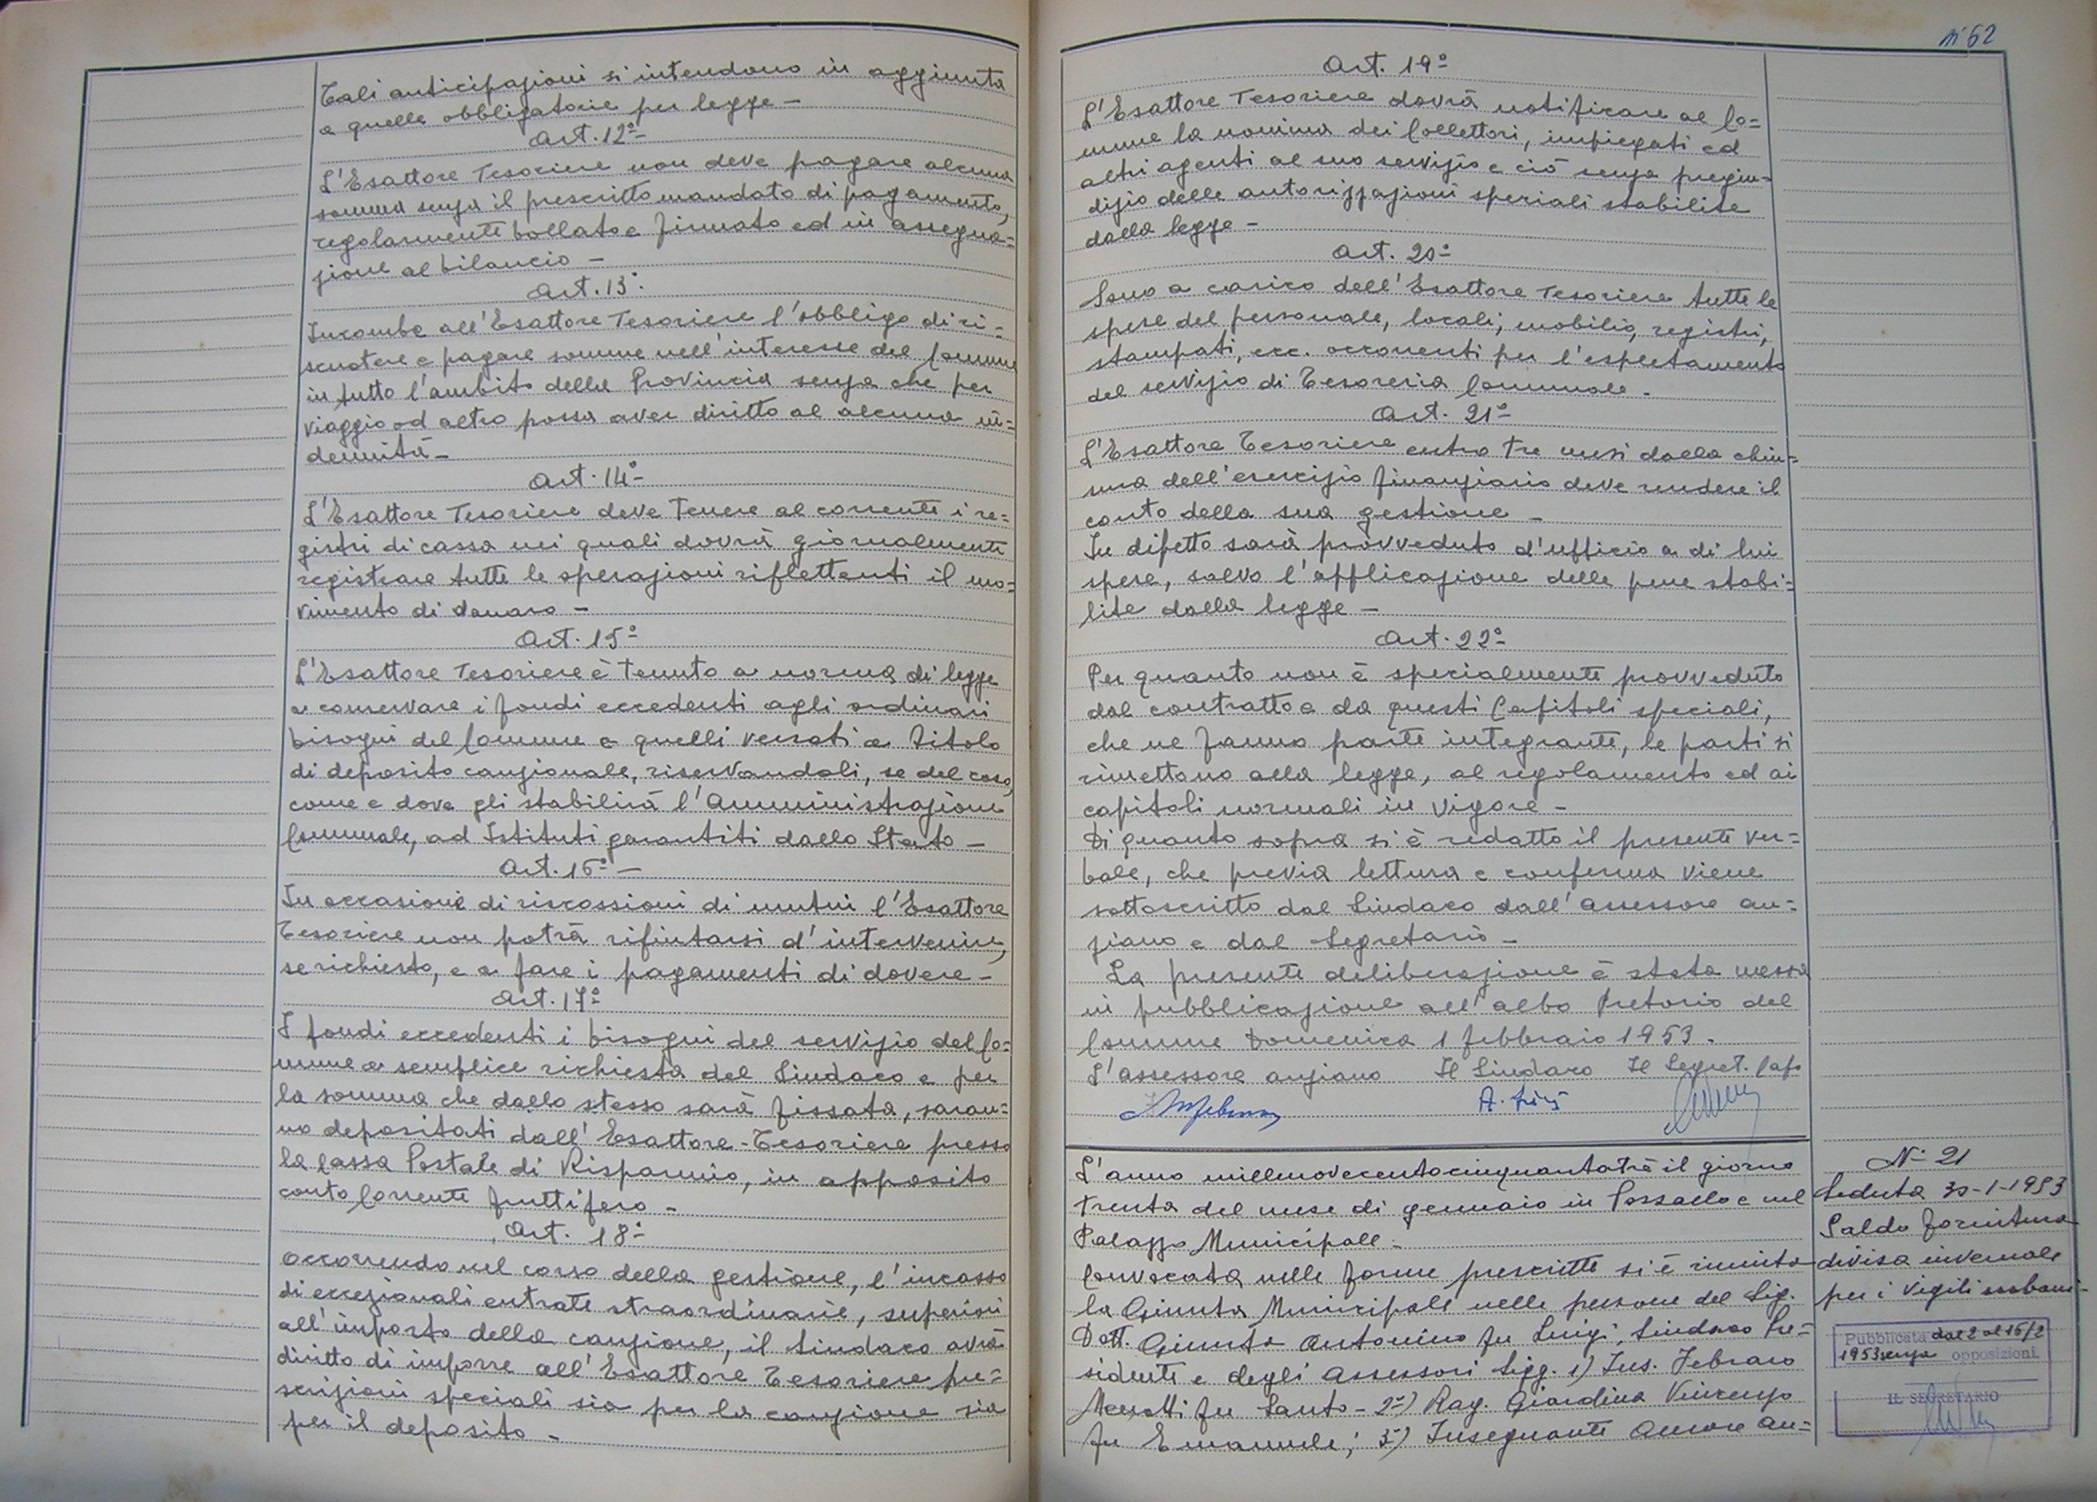 Tali anticipazioni si intendono in aggiunta
a quelle obbligatorie per legge –
Art. 12º
L'Esattore Tesoriere non deve pagare alcuna
somma senza il prescritto mandato di pagamento,
regolarmente bollato e firmato ed in assegna=
zione al bilancio –
Art. 13º
Incombe all'Esattore Tesoriere l'obbligo di ri=
scuotere e pagare somme nell'interesse del Comune
in tutto l'ambito della Provincia senza che per
viaggio od altro possa aver diritto al alcuna in=
dennità –
Art. 14º
L'Esattore Tesoriere deve tenere al corrente i re=
gistri di cassa nei quali dovrà giornalmente
registrare tutte le operazioni riflettenti il mo=
vimento di danaro –
Art. 15º
L'Esattore Tesoriere è tenuto a norma di legge
a conservare i fondi eccedenti agli ordinari
bisogni del Comune e quelli versati a titolo
di deposito cauzionale, riservandoli, se del caso,
come e dove gli stabilirà l'Amministrazione
Comunale, ad Istituti garantiti dallo Stato –
Art. 16º –
In occasione di riscossioni di mutui l'Esattore
Tesoriere non potrà rifiutarsi d'intervenire,
se richiesto, e a fare i pagamenti di dovere –
Art. 17º
I fondi eccedenti i bisogni del servizio del Co=
mune a semplice richiesta del Sindaco e per
la somma che dallo stesso sarà fissata, saran=
no depositati dall'Esattore-Tesoriere presso
la Cassa Postale di Risparmio, in apposito
conto corrente fruttifero –
Art. 18º
Occorrendo nel corso della gestione, l'incasso
di eccezionali entrate straordinarie, superiori
all'importo della cauzione, il Sindaco avrà
diritto di imporre all'Esattore Tesoriere pre=
scrizioni speciali sia per la cauzione sia
per il deposito –
Nº 62
Art. 19º
L'Esattore Tesoriere dovrà notificare al Co=
mune la nomina dei Collettori, impiegati ed
altri agenti al suo servizio e ciò senza pregiu=
dizio delle autorizzazioni speciali stabilite
dalla legge –
Art. 20º
Sono a carico dell'Esattore Tesoriere tutte le
spese del personale, locali, mobilio, registri,
stampati, ecc. occorrenti per l'espletamento
del servizio di Tesoreria Comunale –
Art. 21º
L'Esattore Tesoriere entro tre mesi dalla chiu=
sura dell'esercizio finanziario deve rendere il
conto della sua gestione –
In difetto sarà provveduto d'ufficio a di lui
spese, salvo l'applicazione delle pene stabi=
lite dalla legge –
Art. 22º
Per quanto non è specialmente provveduto
dal contratto e da questi Capitoli speciali,
che ne fanno parte integrante, le parti si
rimettono alla legge, al regolamento ed ai
capitoli normali in vigore –
Di quanto sopra si è redatto il presente ver=
bale, che previa lettura e conferma viene
sottoscritto dal Sindaco dall'Assessore an=
ziano e dal Segretario –
La presente deliberazione è stata messa
in pubblicazione all'albo Pretorio del
Comune Domenica 1 febbraio 1953.
L'assessore anziano Il Sindaco Il Segret. Capo
L'anno millenovecentocinquantatrè il giorno
trenta del mese di gennaio in Pozzallo e nel
Palazzo Municipale.
Convocata nelle forme prescritte si è riunita
la Giunta Municipale nelle persone del Sig.
Dott. Giunta Antonino fu Luigi, Sindaco Pre=
sidente e degli Assessori Sigg. 1) Ins. Febraro
fu Santo – 2º) Rag. Giardina Vincenzo
fu Emanuele; 3º) Insegnante Amore An=
Nº 21
Seduta 30-1-1953
Saldo fornitura
divisa invernale
per i Vigili urbani
Pubblicata dal 2 al 15/2
1953 senza opposizioni.
IL SEGRETARIO